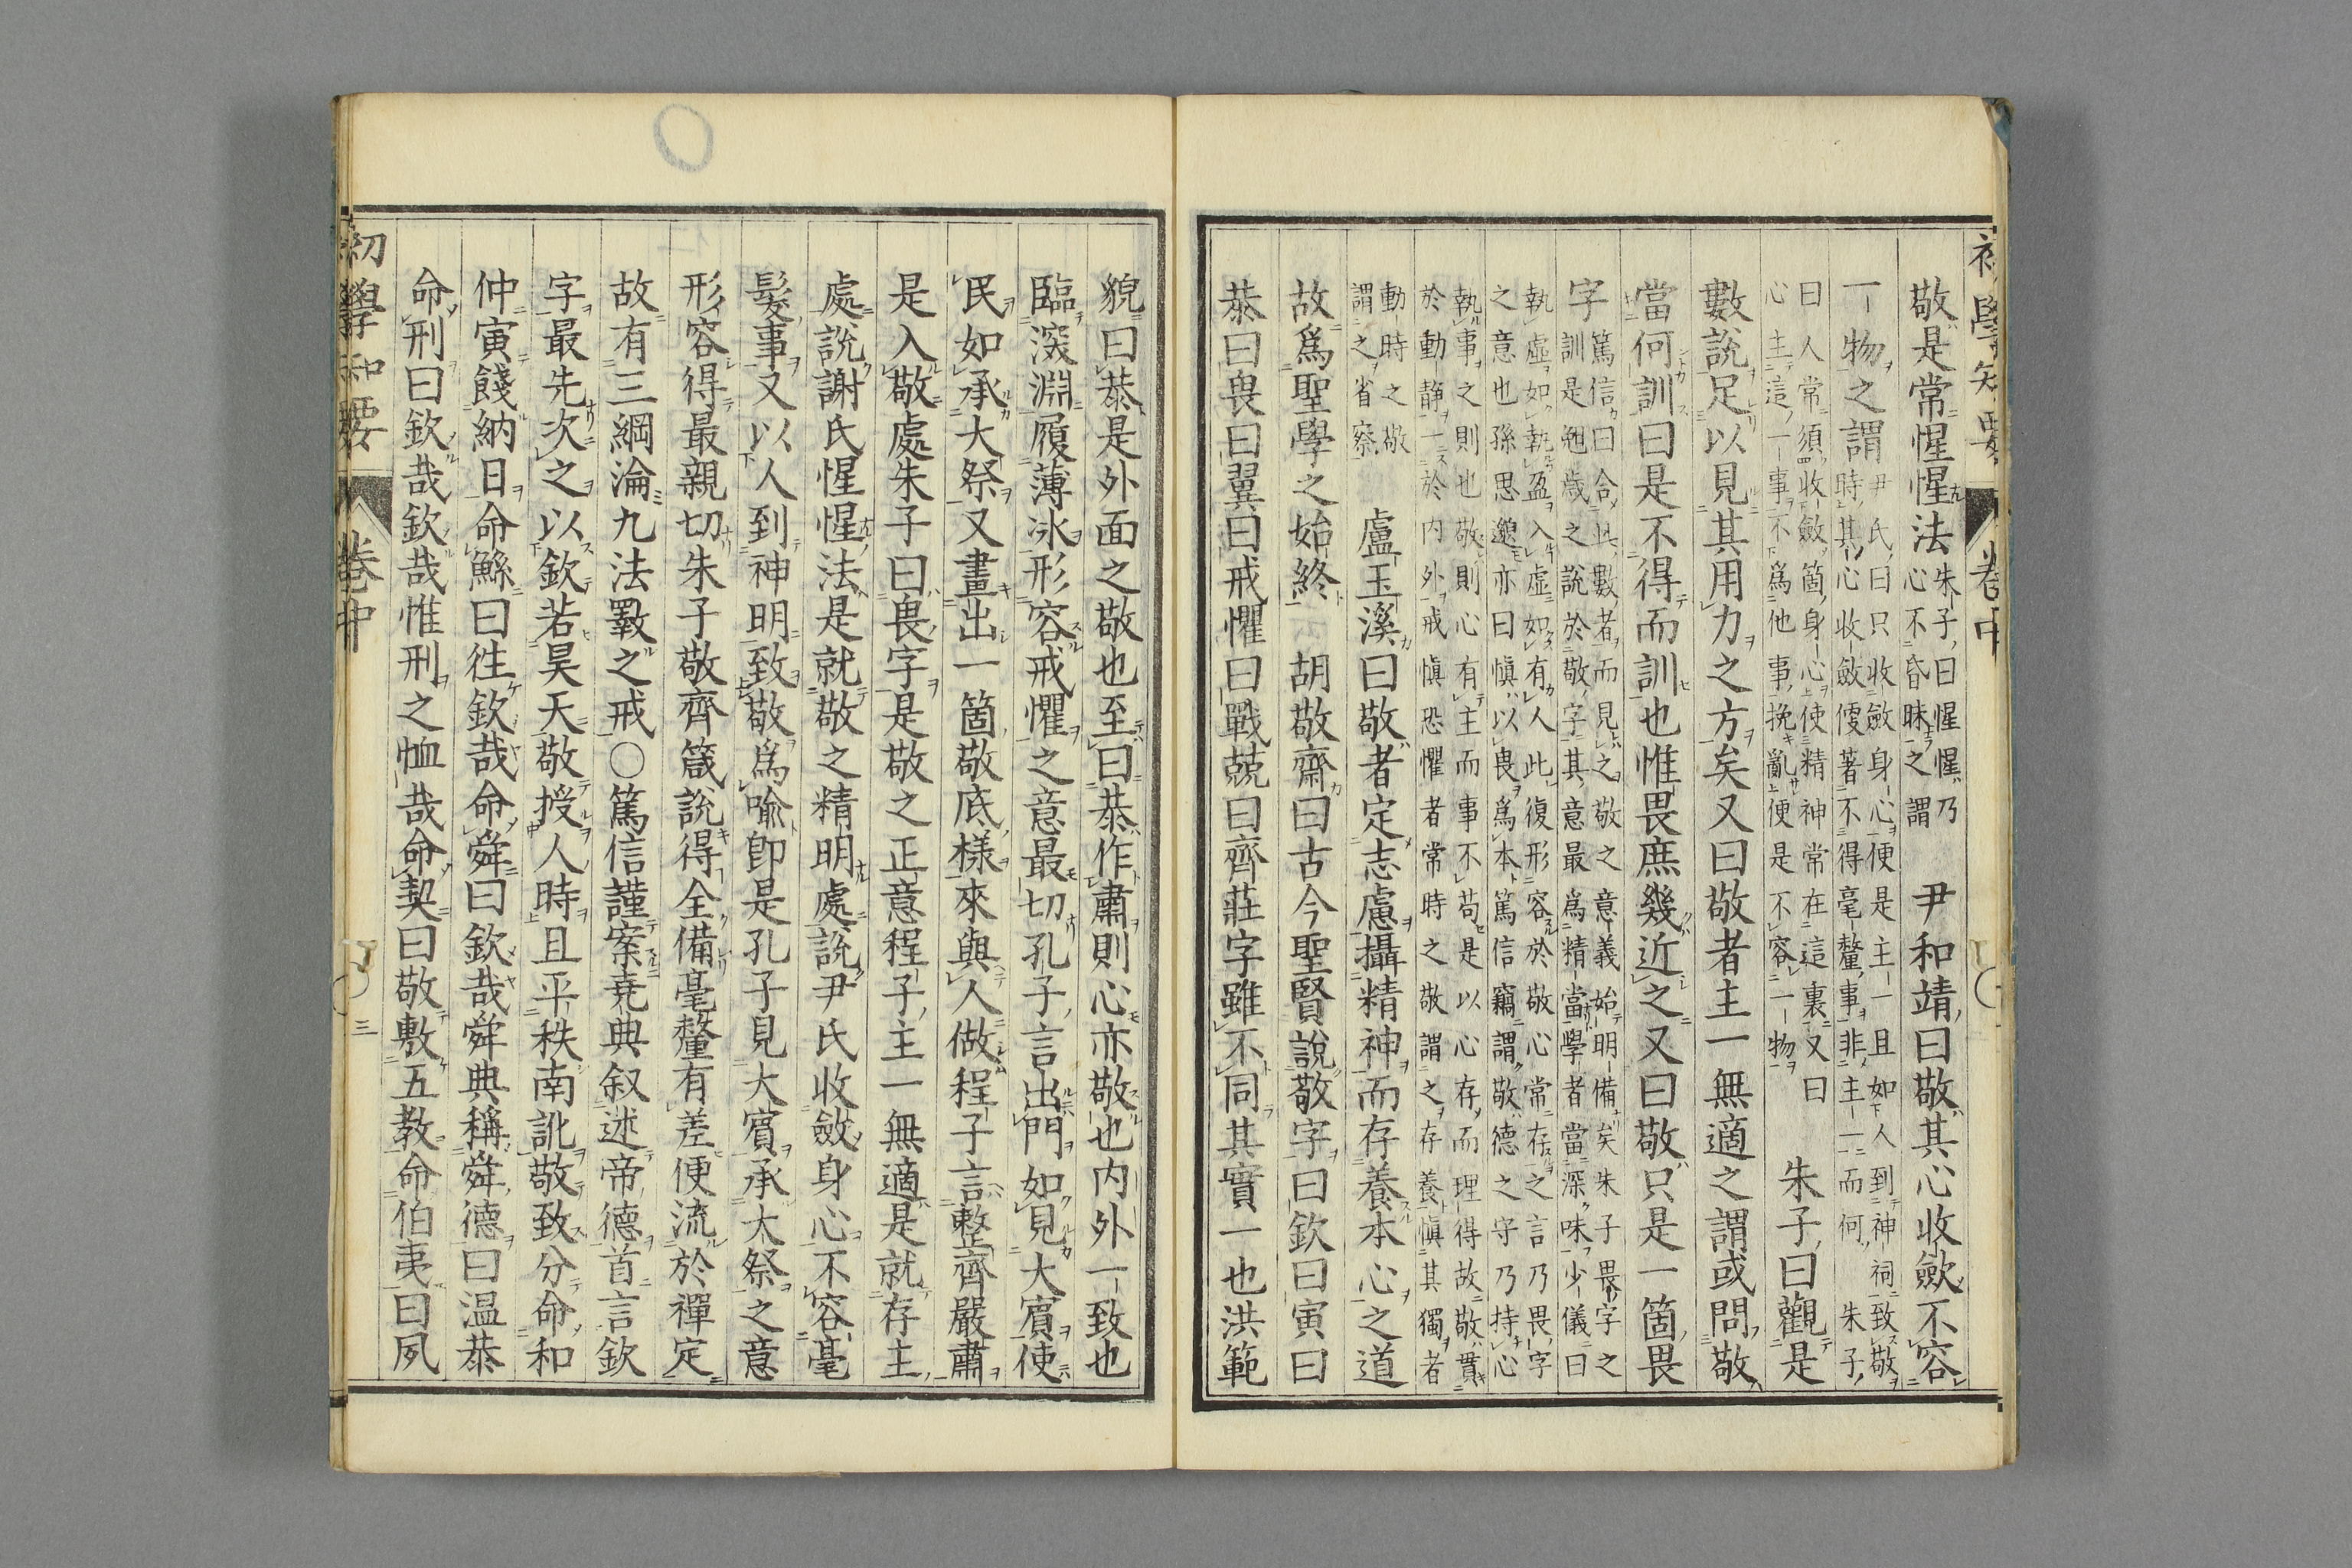 初學知要 卷中
敬是常惺惺法朱子曰惺惺乃心不昏昧之謂 尹和靖曰敬其心收斂不容
一物之謂尹氏曰只收斂身心便是主一且如人到神祠致敬時其心收斂便著不得毫釐事非主一而何 朱子
曰人常須收斂箇身心使精神常在這裏又曰心主這一事不爲他事挽亂便是不容一物 朱子曰觀是
數說足以見其用力之方矣又曰敬者主一無適之謂或問敬
當何訓曰是不得而訓也惟畏庶幾近之又曰敬只是一箇畏
字篤信曰合此數者而見之敬之意義始明備矣朱子畏字之訓是勉歲之說於敬字其意最爲精當學者當深味少儀曰
執虛如執盈入虛如有人此復形容於敬心常存之言乃畏字之意也孫思邈亦曰愼以畏爲本篤信竊謂敬德之守乃持心
執事之則也敬則心有主而事不苟是以心存而理得故敬貫於動靜一於内外戒愼恐懼者常時之敬謂之存養愼其獨者
動時之敬謂之省察 盧玉溪曰敬者定志慮攝精神而存養本心之道
故爲聖學之始終 胡敬齋曰古今聖賢說敬字曰欽曰寅曰
恭曰畏曰翼曰戒懼曰戰兢曰齊莊字雖不同其實一也洪範
貌曰恭是外面之敬也至曰恭作肅則心亦敬也内外一致也
臨深淵履薄冰形容戒懼之意最切孔子言出門如見大賓使
民如承大祭又畫出一箇敬底樣來與人做程子言整齊嚴肅
是入敬處朱子曰畏字是敬之正意程子主一無適是就存主
處說謝氏惺惺法是就敬之精明處說尹氏收斂身心不容毫
髮事又以人到神明致敬爲喩卽是孔子見大賓承大祭之意
形容得最親切朱子敬齊箴說得全備毫釐有差便流於禪定
故有三綱淪九法斁之戒○篤信謹案堯典叙述帝德首言欽
字最先次之以欽若昊天敬授人時且平秩南訛敬致分命和
仲寅餞納日命鯀曰往欽哉命舜曰欽哉舜典稱舜德曰温恭
命刑曰欽哉欽哉惟刑之恤哉命契曰敬敷五教命伯夷曰夙
初學知要 卷中 三